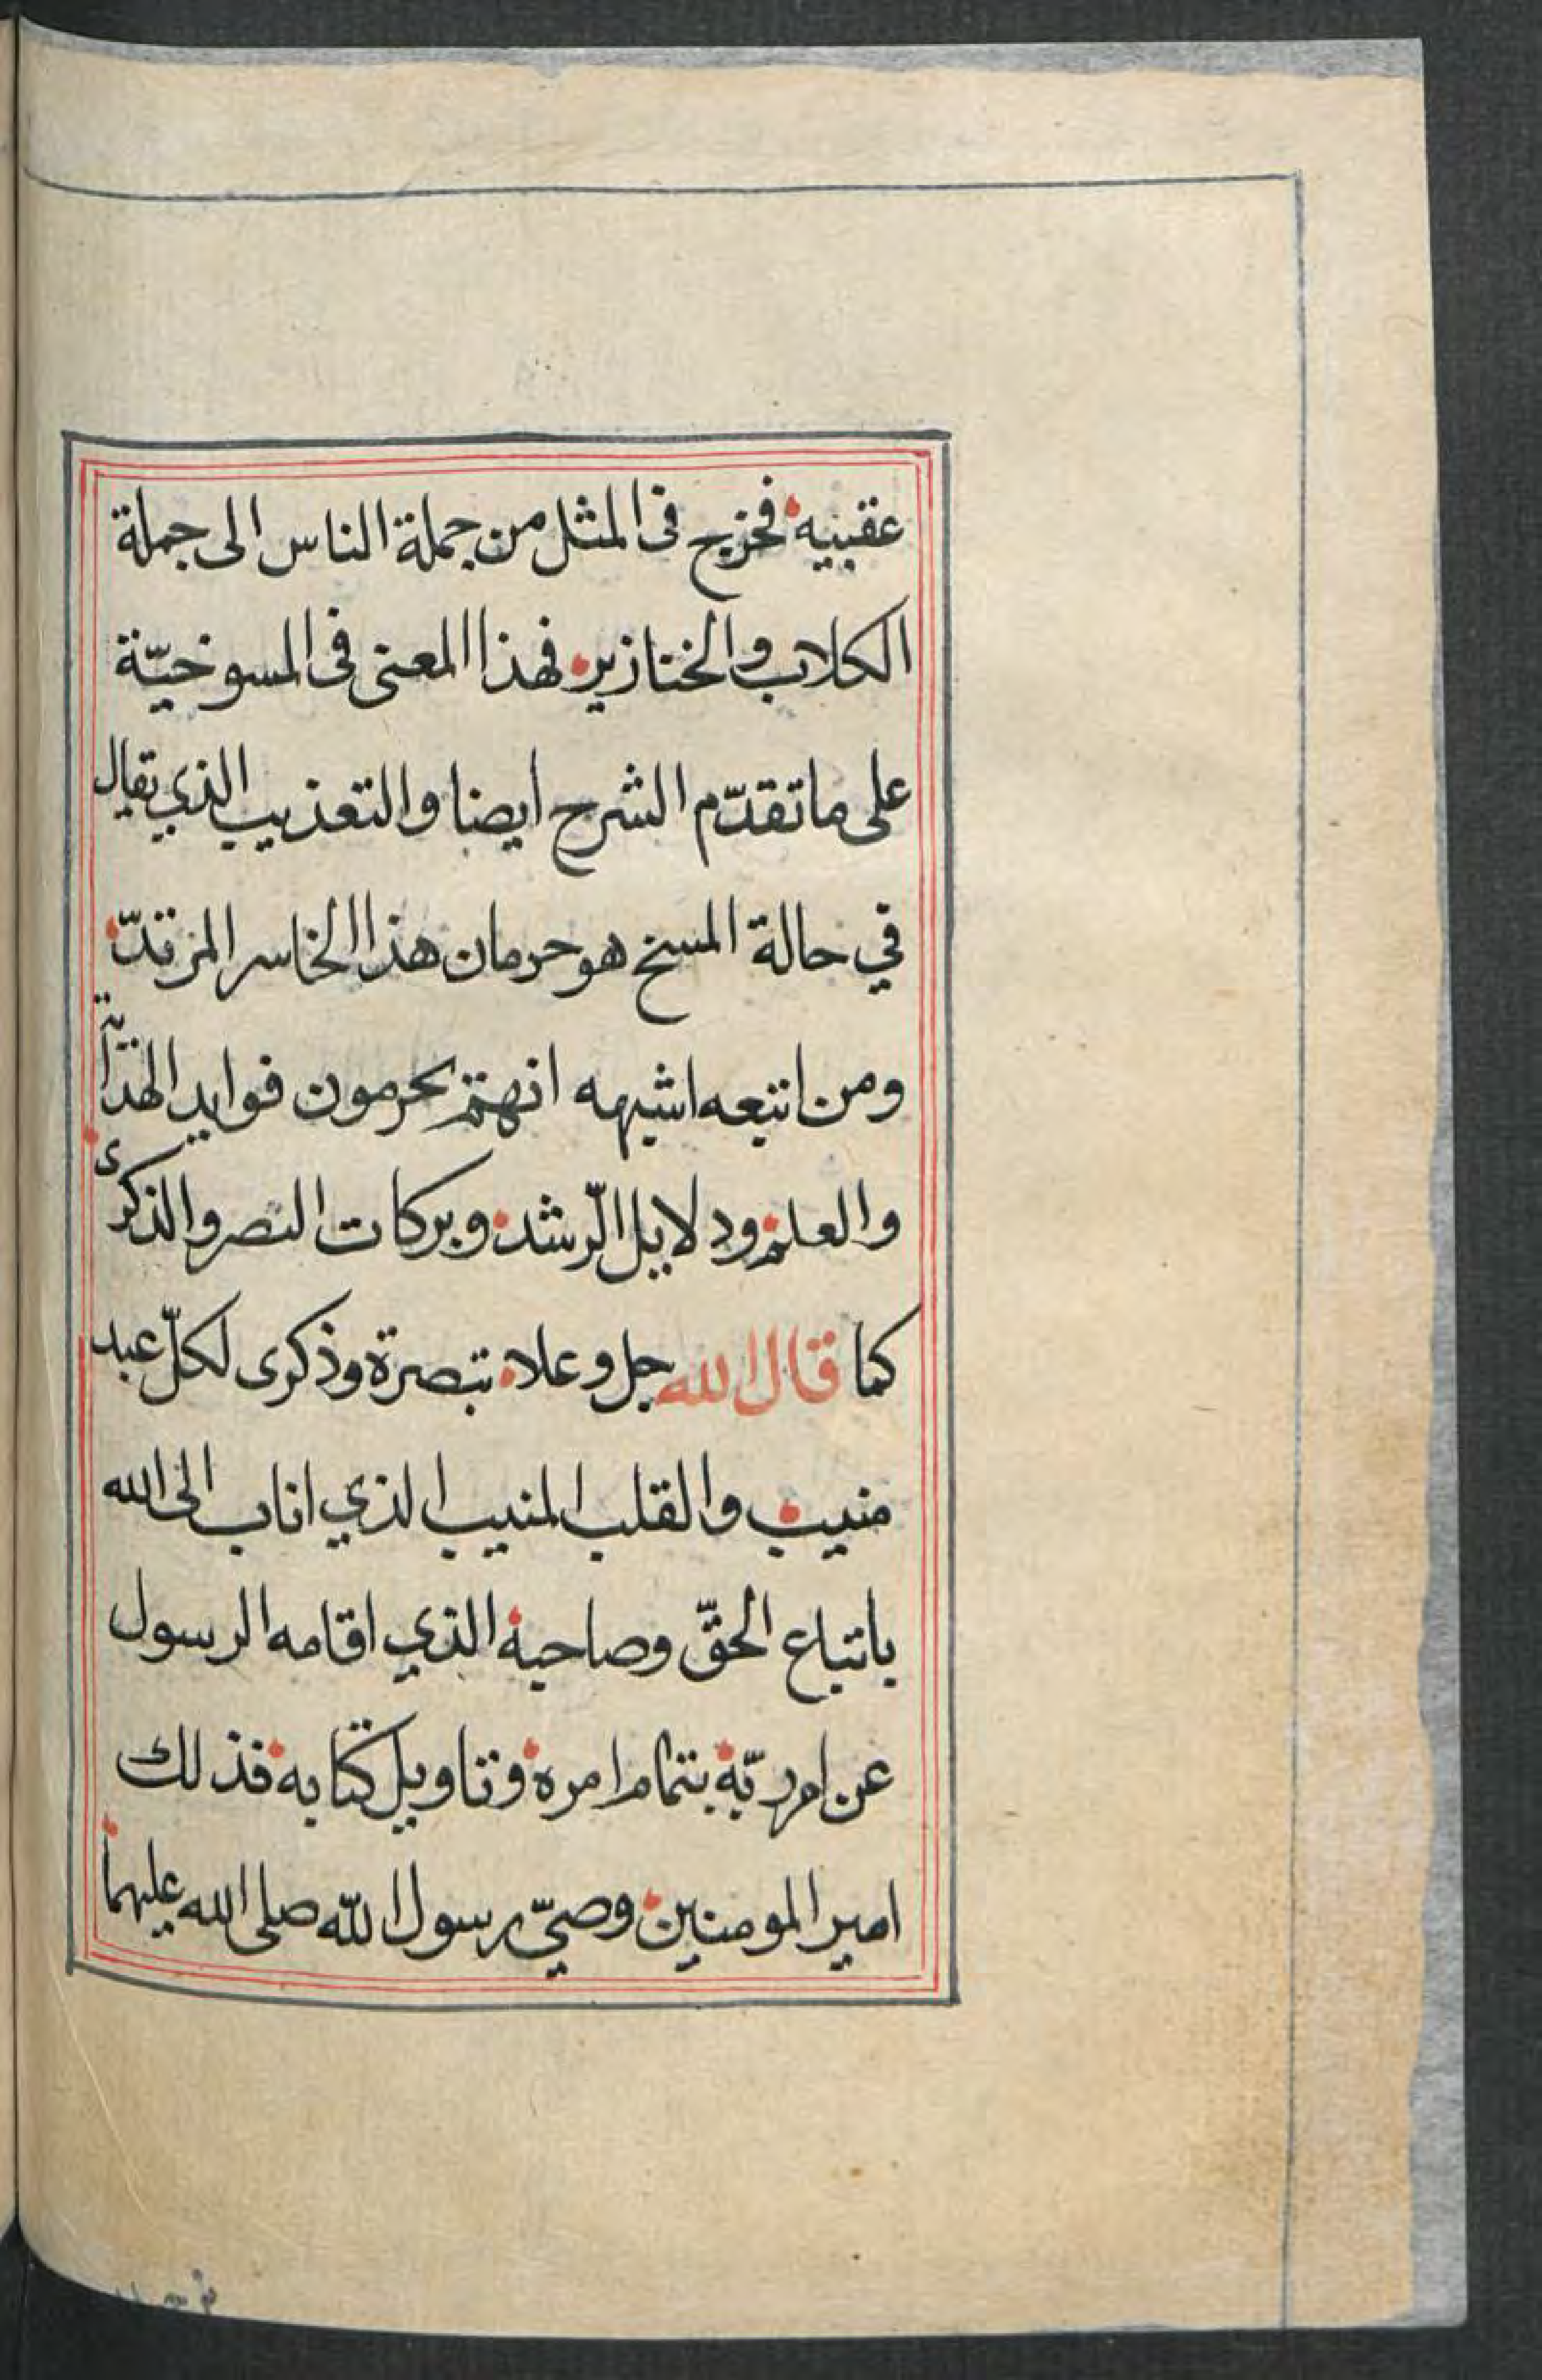 عقبيه فخرج فى المثل من جملة الناس الى جملة
الكلاب والخنازير فهذا المعنى فى المسوخيّة
على ما تقدّم الشرح ايضا والتعذيب الذي يقال
في حالة المسخ هو حرمان هذا الخاسر المرتدّ
ومن اتبعه اشبهه انهم يحرمون فوايد الهداية
والعلم ودلايل الرّشد وبركات النصر والذكرى
كما قال الله جل وعلا تبصرة وذكرى لكلّ عبد
منيب والقلب المنيب الذي اناب الى الله
باتباع الحقّ وصاحبه الذي اقامه الرسول
عن امر ربّه بتمام امره وتاويل كتابه فذلك
امير المومنين وصيّ رسول اللّه صلى الله عليهما